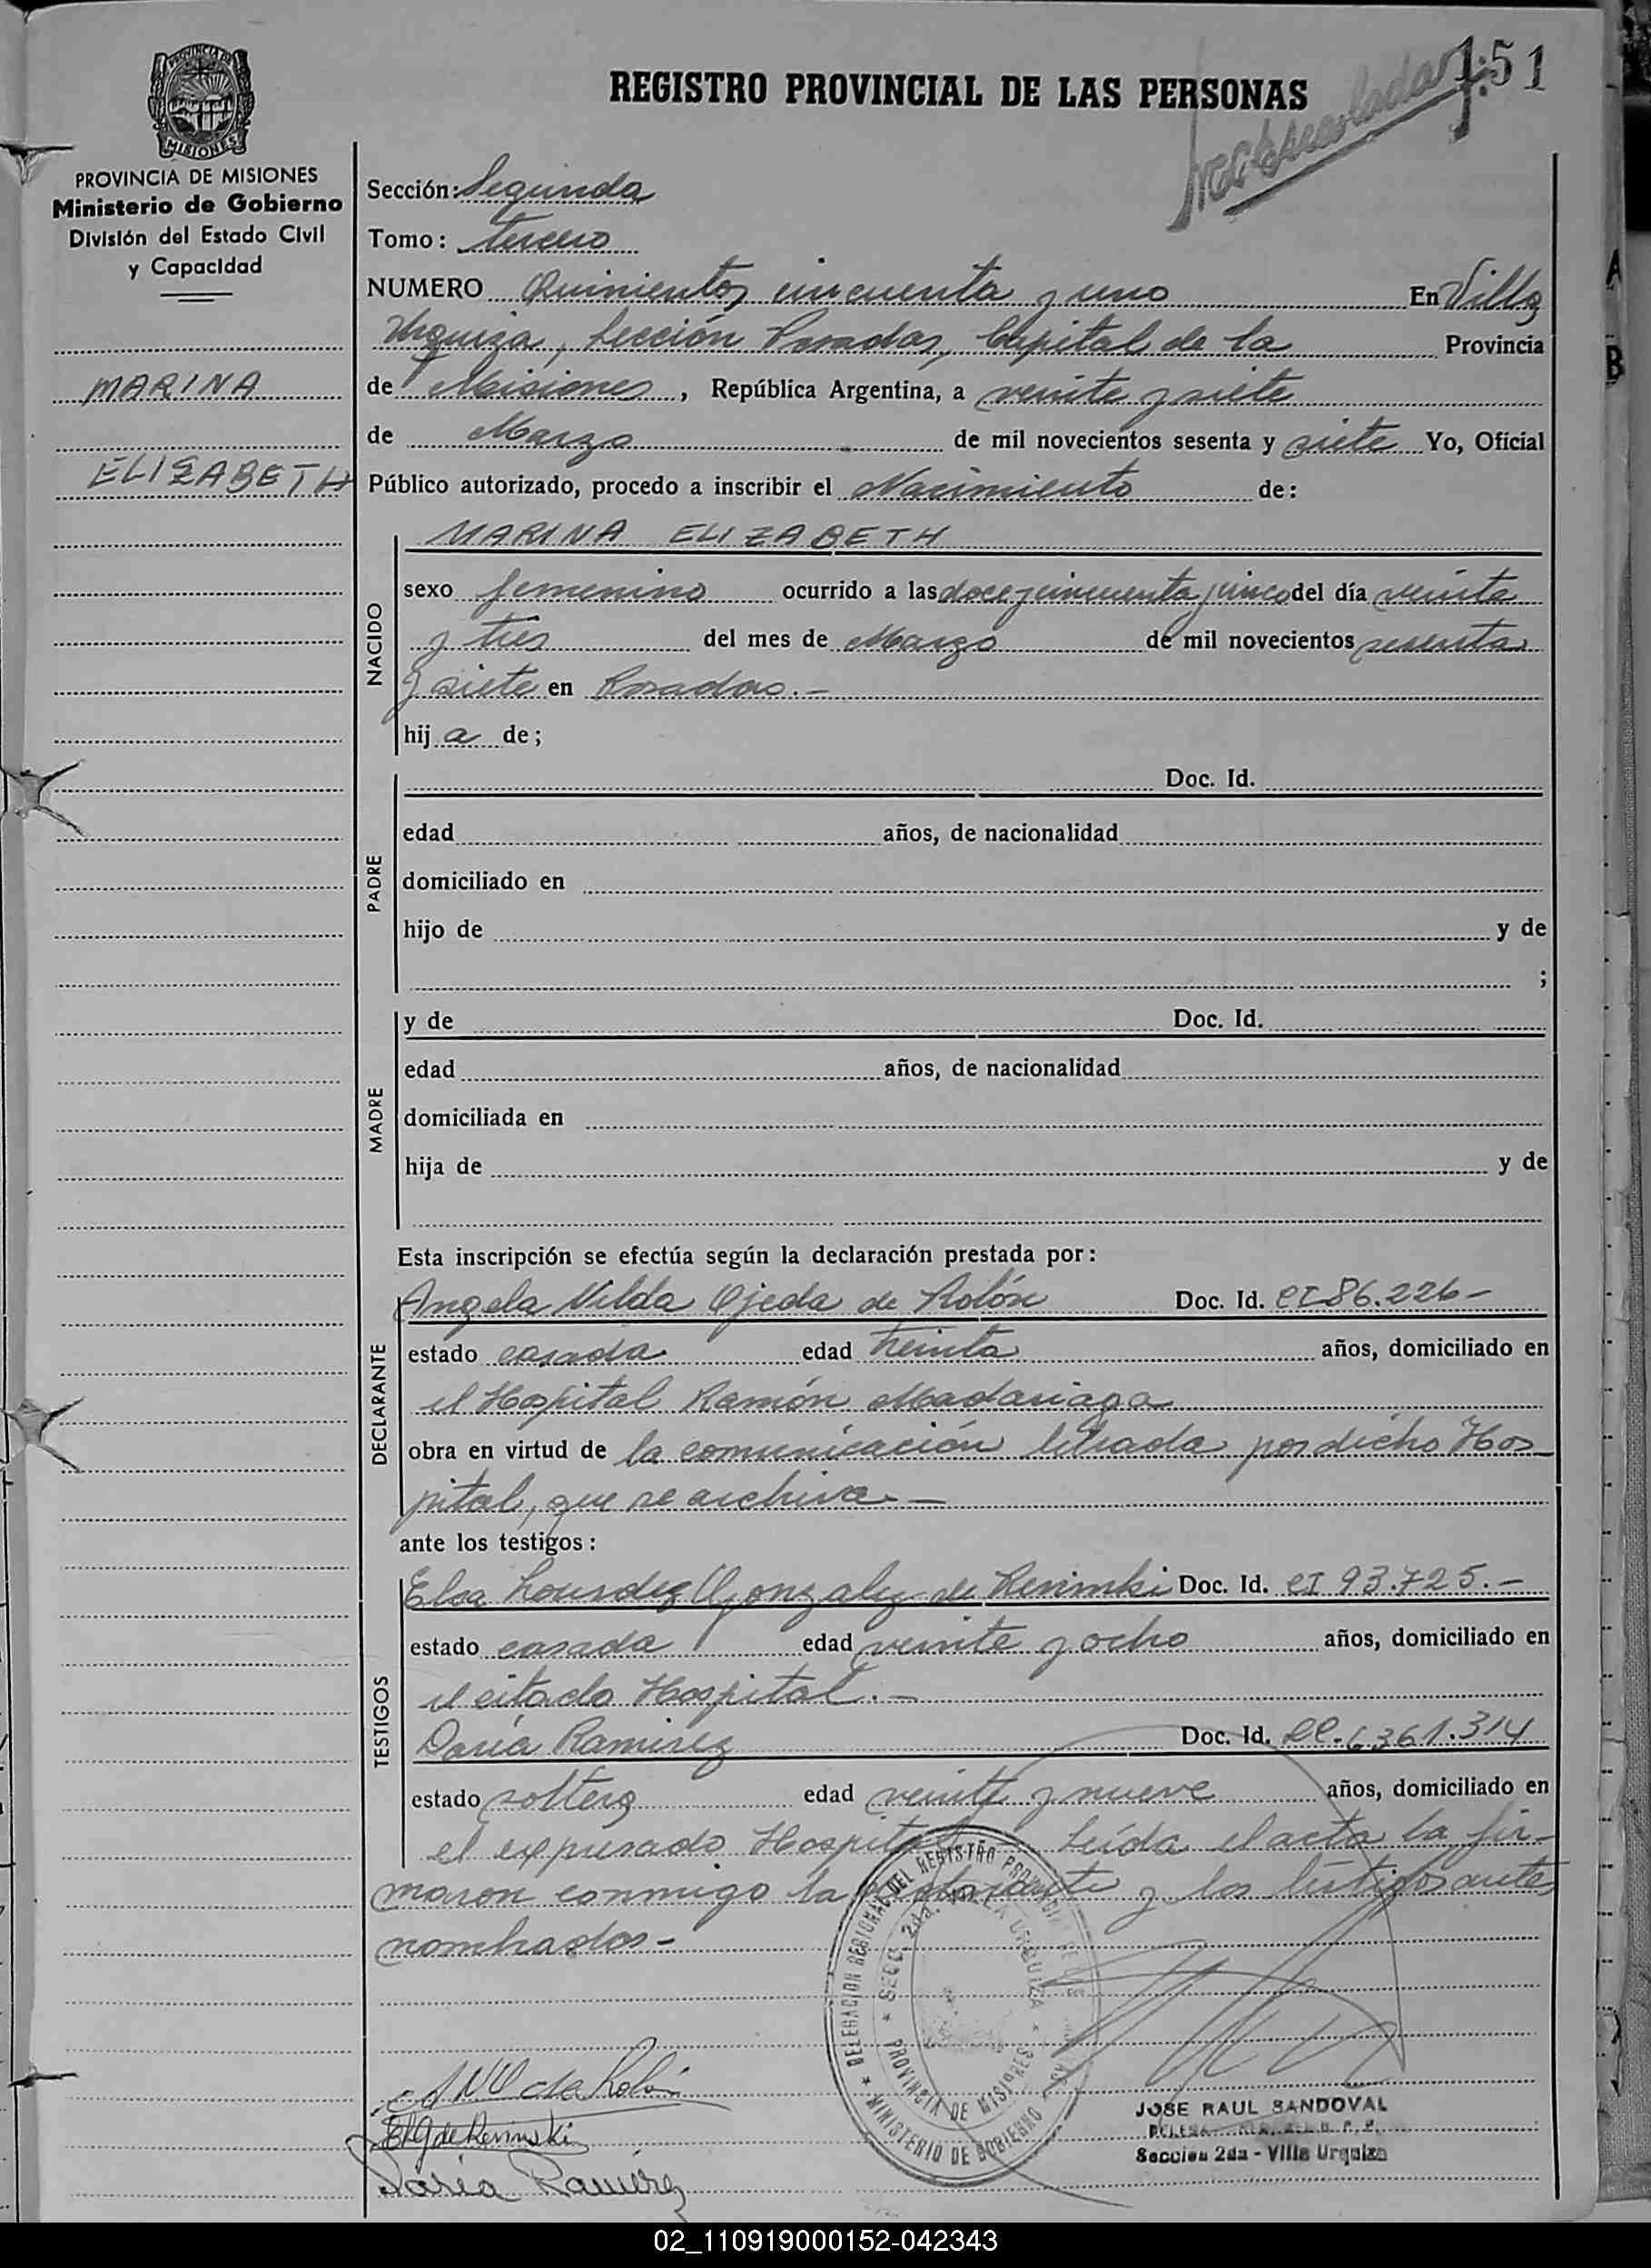 151
REGISTRO PROVINCIAL DE LAS PERSONAS
PROVINCIA DE
MISIONES
PROVINCIA DE MISIONES
Ministerio de Gobierno
División del Estado Civil
y Capacidad
MARINA
ELIZABETH
Sección: Segunda
Tomo: tercero
NUMERO Quinientos cincuenta y uno En Villa
Urquiza, Sección Posadas, Capital de la Provincia
de Misiones, República Argentina, a veinte y siete
de Marzo de mil novecientos sesenta y siete Yo, Oficial
Público autorizado, procedo a inscribir el Nacimiento de:
NACIDO
MARINA ELIZABETH
sexo femenino ocurrido a las doce y cincuenta y cinco del día veinte
y tres del mes de Marzo de mil novecientos sesenta
y siete en Posadas.-
hij a de;
PADRE
Doc. Id.
edad años, de nacionalidad
domiciliado en
hijo de y de
;
MADRE
y de Doc. Id.
edad años, de nacionalidad
domiciliada en
hija de y de
Esta inscripción se efectúa según la declaración prestada por:
DECLARANTE
Angela Nilda Ojeda de Rolón Doc. Id. CI 86.226-
estado casada edad treinta años, domiciliado en
el Hospital Ramón Madariaga
obra en virtud de la comunicación librada por dicho Hos-
pital, que se archiva.-
ante los testigos:
TESTIGOS
Elsa Lourdes Gonzalez de Doc. Id. CI 93.725.-
estado casada edad veinte y ocho años, domiciliado en
el citado Hospital.-
Daría Ramirez Doc. Id. LC.6361.314
estado soltera edad veinte y nueve años, domiciliado en
el expresado Hospital Leída el acta la fir-
maron conmigo la declarante y los testigos ante
nombrados-
DELEGACION REGIONAL DEL REGISTRO PROVINCIAL DE LAS
SECC. 2da. VILLA URQUIZA
PROVINCIA DE MISIONES
MINISTERIO DE GOBIERNO
de Rolón
Daría Ramírez
JOSE RAUL SANDOVAL
Seccion 2da - Villa Urquiza
02_110919000152-042343